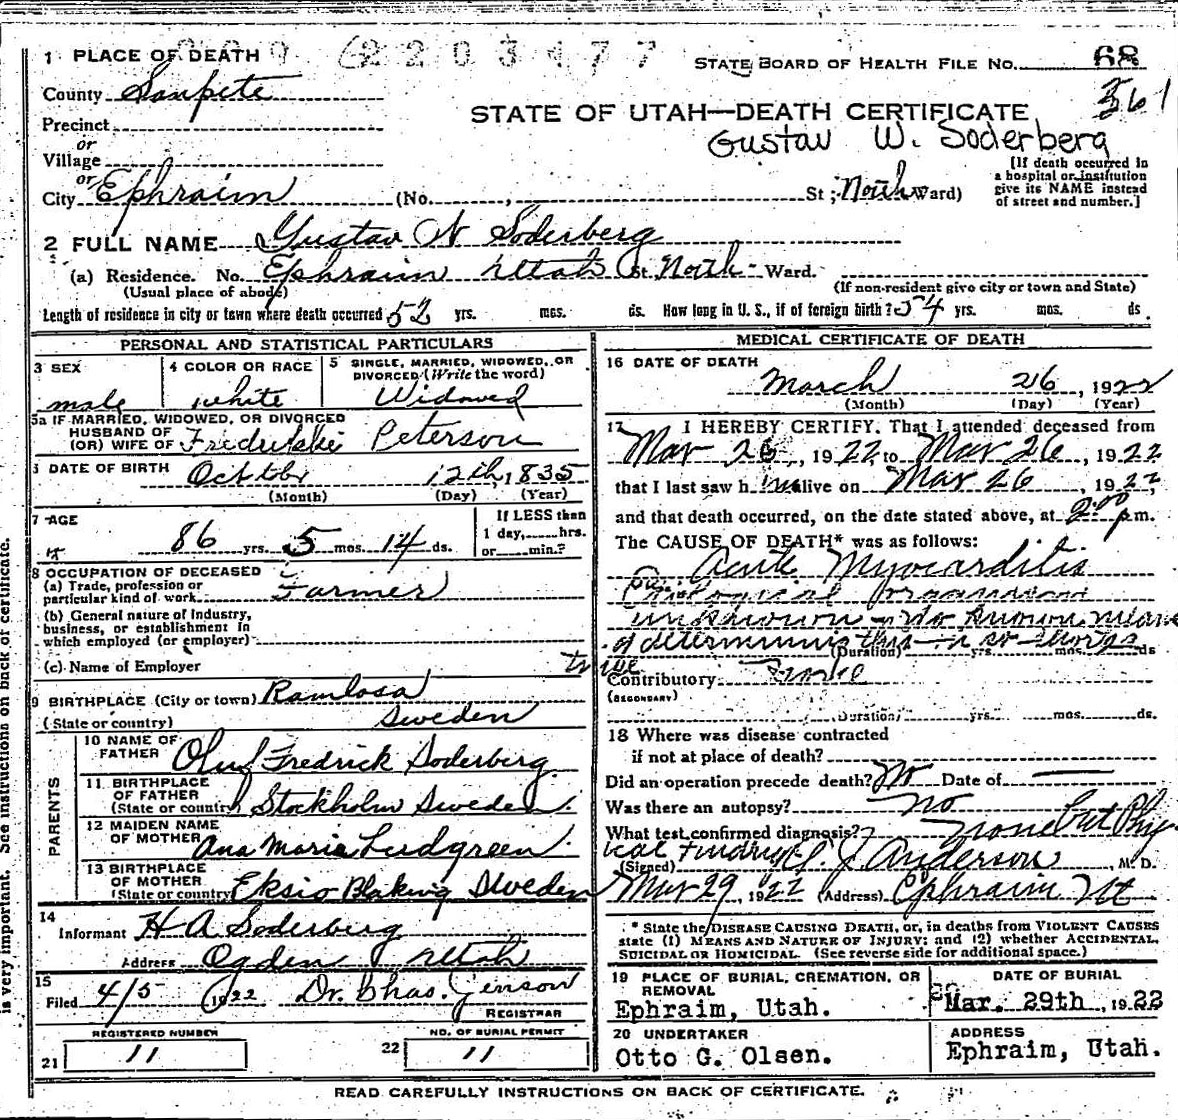 1 PLACE OF DEATH
STATE BOARD OF HEALTH FILE NO. 68
County Sanpete
361
STATE OF UTAH—DEATH CERTIFICATE
Precinct
or
Gustav W. Soderberg
Village
or
[If death occurred in a hospital or institution give its NAME instead of street and number.]
City Ephraim (No. , St; North Ward)
2 FULL NAME Gustav W Soderberg
(a) Residence. No. Ephraim Utah St. North Ward.
(Usual place of abode) (If non-resident give city or town and State)
Length of residence in city or town where death occurred 52 yrs. mos. ds. How long in U. S., if of foreign birth? 54 yrs. mos. ds.
PERSONAL AND STATISTICAL PARTICULARS
3 SEX 4 COLOR OR RACE 5 SINGLE, MARRIED, WIDOWED, OR
DIVORCED (Write the word)
male white Widowed
5a IF MARRIED, WIDOWED, OR DIVORCED
HUSBAND OF
(OR) WIFE OF Peterson
DATE OF BIRTH October 12th, 1835
(Month) (Day) (Year)
7 AGE If LESS than
86 yrs. 5 mos. 14 ds. 1 day, hrs.
or min.?
8 OCCUPATION OF DECEASED
(a) Trade, profession or
particular kind of work Farmer
(b) General nature of Industry,
business, or establishment in
which employed (or employer)
(c) Name of Employer
9 BIRTHPLACE (City or town) Ramlosa
(State or country) Sweden
PARENTS
10 NAME OF
FATHER Oluf Fredrick Soderberg
11 BIRTHPLACE
OF FATHER
(State or country) Stockholm Sweden.
12 MAIDEN NAME
OF MOTHER Ana Maria Ludgreen.
13 BIRTHPLACE
OF MOTHER
(State or country) Eksio Sweden
14
Informant H A Soderberg
Address Ogden Utah
15
Filed 4/5 1922 Dr. Chas. Jenson
REGISTRAR
REGISTERED NUMBER NO. OF BURIAL PERMIT
21 11 22 11
MEDICAL CERTIFICATE OF DEATH
16 DATE OF DEATH
March 26, 1922
(Month) (Day) (Year)
17 I HEREBY CERTIFY, That I attended deceased from
Mar 26, 1922, to Mar 26, 1922
that I last saw h im alive on Mar 26, 1922,
and that death occurred, on the date stated above, at 2:00 p.m.
The CAUSE OF DEATH* was as follows:
Acute Myocarditis
unknown no known means
of determining this in so short a
(Duration) yrs. mos. ds
time
Contributory
(SECONDARY)
(Duration) yrs. mos. ds.
18 Where was disease contracted
if not at place of death?
Did an operation precede death? No Date of
Was there an autopsy? no
What test confirmed diagnosis? none but Phy
ical Findings
(Signed) J Anderson, M. D.
Mar 29, 1922 (Address) Ephraim Ut
* State the DISEASE CAUSING DEATH, or, in deaths from VIOLENT CAUSES
state (1) MEANS AND NATURE OF INJURY; and (2) whether ACCIDENTAL,
SUICIDAL OR HOMICIDAL. (See reverse side for additional space.)
19 PLACE OF BURIAL, CREMATION, OR REMOVAL DATE OF BURIAL
Ephraim, Utah. Mar. 29th, 1922
20 UNDERTAKER ADDRESS
Otto G. Olsen. Ephraim, Utah.
READ CAREFULLY INSTRUCTIONS ON BACK OF CERTIFICATE.
is very important. See instructions on back of certificate.